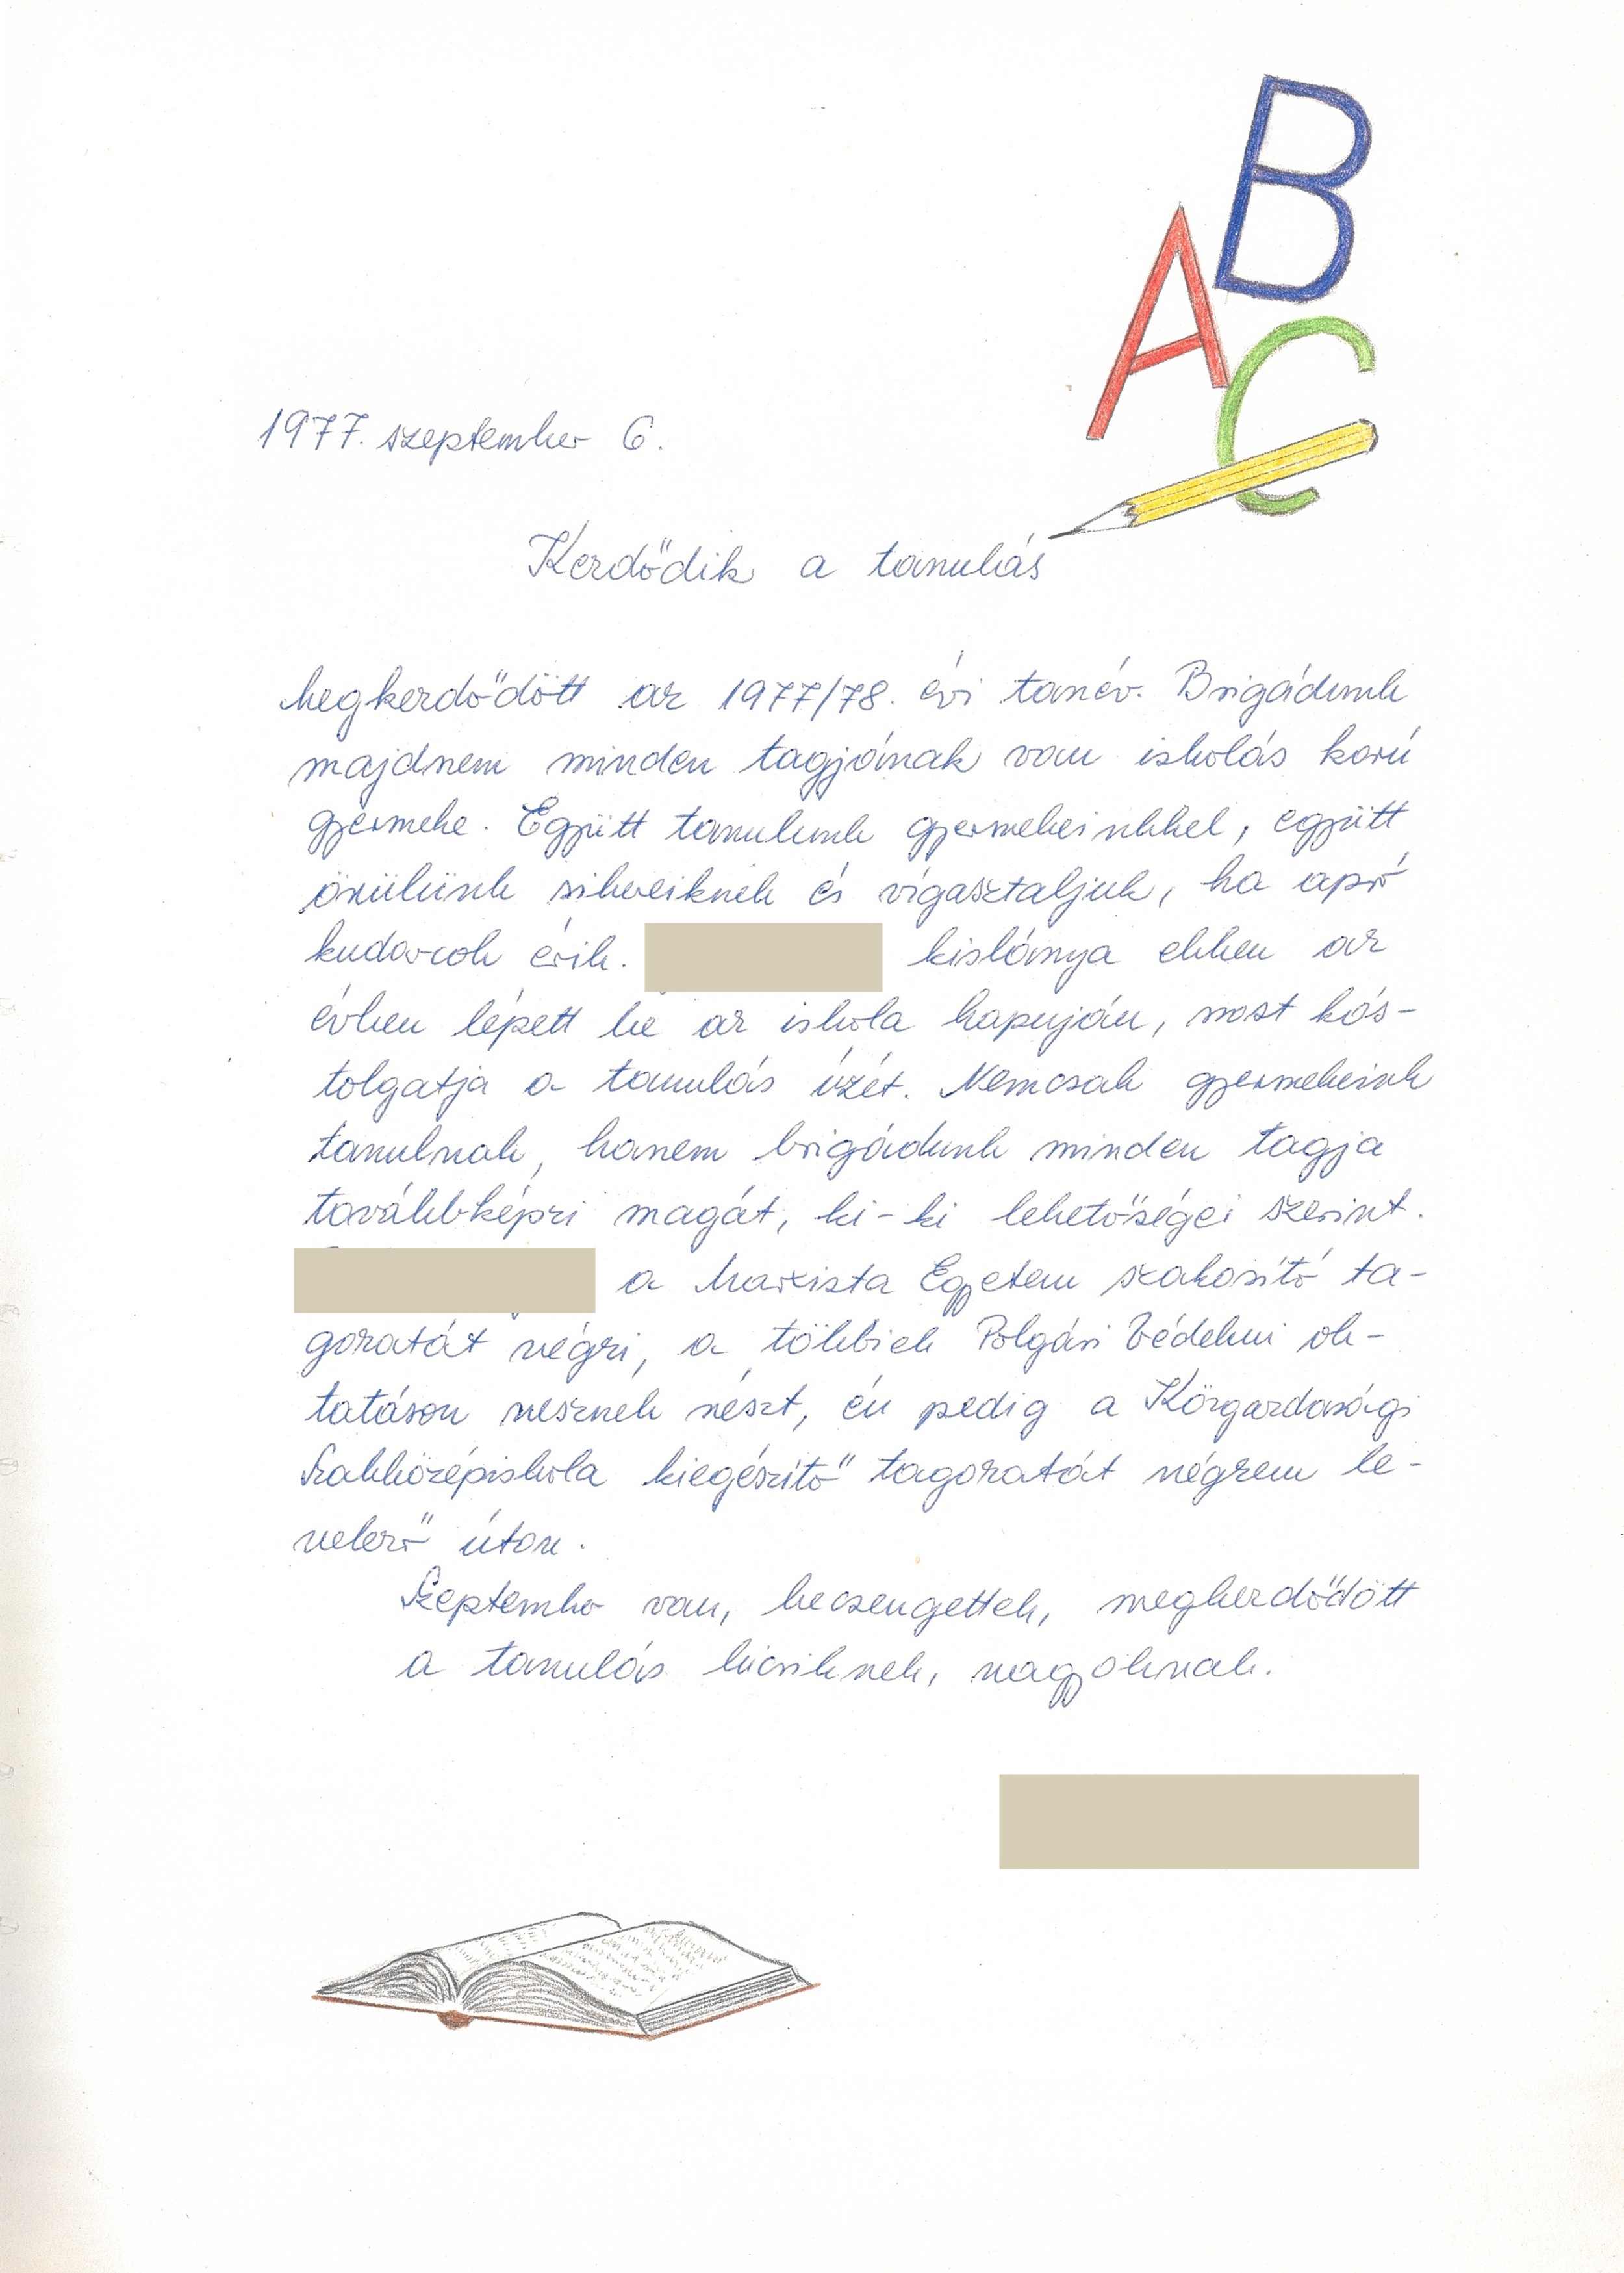 ABC
1977. szeptember 6.
Kezdődik a tanulás
Megkezdődött az 1977/78. évi tanév. Brigádunk
majdnem minden tagjának van iskolás korú
gyermeke. Együtt tanulunk gyermekeinkkel, együtt
örülünk sikereiknek és vigasztaljuk, ha apró
kudarcok érik. kislánya ebben az
évben lépett be az iskola kapuján, most kós-
tolgatja a tanulás ízét. Nemcsak gyermekeink
tanulnak, hanem brigádunk minden tagja
továbbképzi magát, ki-ki lehetőségei szerint.
a Marxista Egyetem szakosító ta-
gozatát végzi, a többiek Polgári Védelmi ok-
tatáson vesznek részt, én pedig a Közgazdasági
Szakközépiskola kiegészítő tagozatát végzem le-
velező úton.
Szeptember van, becsengettek, megkezdődött
a tanulás kicsiknek, nagyoknak.